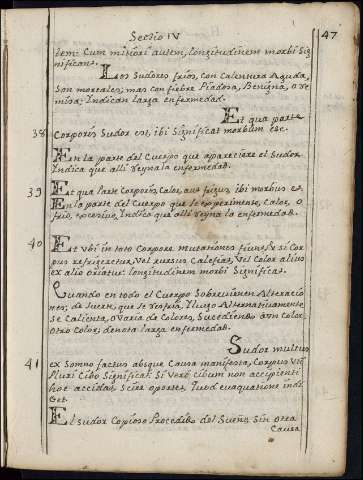 Sectio IV
47
tem: Cum mitiori autem, longitudinem morbi Sig
nificant.
Los Sudores frios, con Calentura Aguda,
Son mortales; mas con fiebre Piadosa, Benigna, o re
misa; Indican larga enfermedad.
Et qua parte
38 Corporis Sudor est, ibi Significat morbum ese.
En la parte del Cuerpo que apareciere el Sudor
Indica que alli reyna la enfermedad.
39 Et qua parte Corporis, Calor, aut frigus, ibi morbus est.
En la parte del Cuerpo que se experimente, Calor, o
frio, excesivo, Indica que alli reyna la enfermedad.
40 Et ubi in toto Corpore mutationes fiunt, & si Cor
pus refrigeretur, Vel rursus Calefiat, Vel Color alius
ex alio oriatur: longitudinem morbi Significat.
Quando en todo el Cuerpo Sobrevienen Alteracio
nes; de Suerte, que Se resfria, y luego Alternativamente,
Se Calienta, o Varia de Colores, Sucediendo a un Color,
Otro Color; denota larga enfermedad.
Sudor multus
41 ex Somno factus absque Causa manifesta, Corpus Uti
Pluri Cibo Significat. Si Vero cibum non accipienti
hoc accidat, Scire oportet, Quod evaquatione indi
get.
El Sudor Copioso Procedido del Sueño, Sin otra
Causa